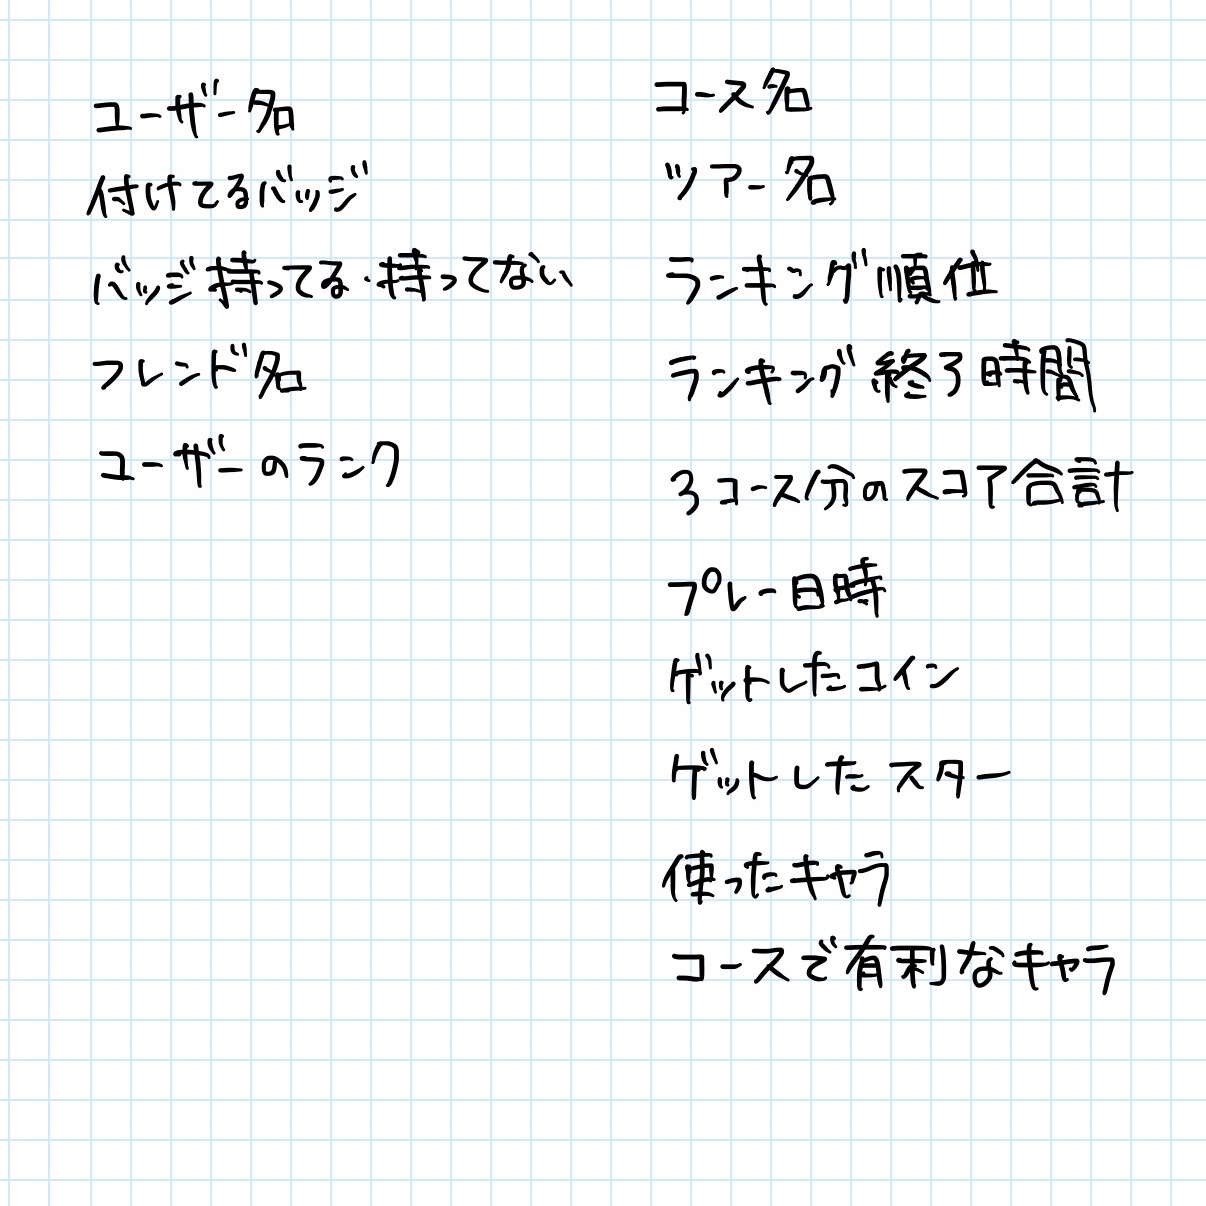 ユーザー名
付けてるバッジ
バッジ持ってる・持ってない
フレンド名
ユーザーのランク
コース名
ツアー名
ランキング順位
ランキング終了時間
3コース分のスコア合計
プレー日時
ゲットしたコイン
ゲットしたスター
使ったキャラ
コースで有利なキャラ